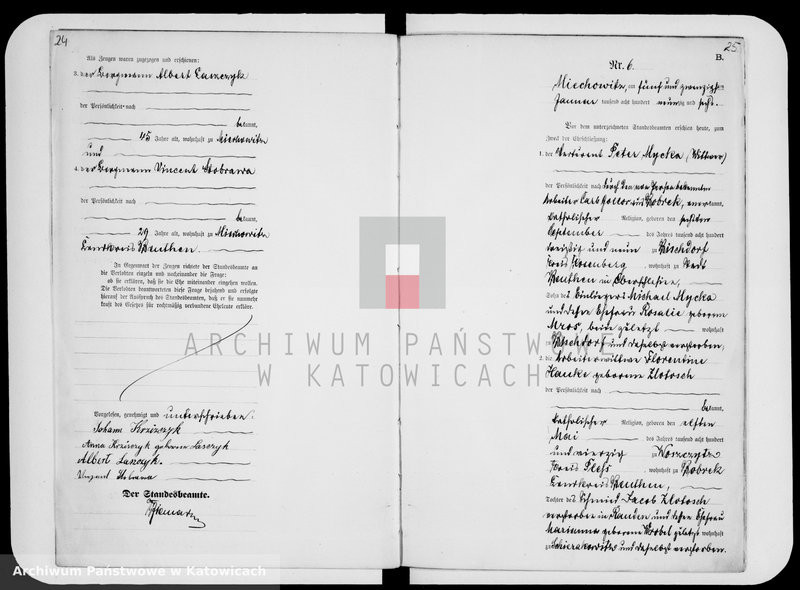 24
Als Zeugen waren zugezogen und erschienen:
3. der Bergmann Albert Lanczyk
der Persönlichkeit nach
bekannt,
45 Jahre alt, wohnhaft zu Miechowitz
und
4. der Bergmann Vincent Stobrawa
der Persönlichkeit nach
bekannt,
29 Jahre alt, wohnhaft zu Miechowitz
Landkreis Beuthen.
In Gegenwart der Zeugen richtete der Standesbeamte an
die Verlobten einzeln und nacheinander die Frage:
ob sie erklären, daß sie die Ehe miteinander eingehen wollen.
Die Verlobten beantworteten diese Frage bejahend und erfolgte
hierauf der Ausspruch des Standesbeamten, daß er sie nunmehr
kraft des Gesetzes für rechtmäßig verbundene Eheleute erkläre.
Vorgelesen, genehmigt und unterschrieben.
Johann
Anna geborene
Albert
Vinzent
Der Standesbeamte.
25
B.
Nr. 6.
Miechowitz, am fünf und zwanzigsten
Januar tausend acht hundert neunzig und sechs.
Vor dem unterzeichneten Standesbeamten erschien heute, zum
Zweck der Eheschließung:
1. der Peter Mycka (Wittwer)
der Persönlichkeit nach durch den von Person bekannten
Arbeiter Carl aus Bobrek, anerkannt,
katholischer Religion, geboren den sechsten
September des Jahres tausend acht hundert
dreißig und neun zu Bischdorf
Kreis Rosenberg, wohnhaft zu Stadt
Beuthen in Oberschlesien,
Sohn des Einliegers Michael Mycka
und dessen Ehefrau Rosalie geborene
Mros, beide zuletzt wohnhaft
zu Bischdorf und daselbst verstorben;
2. die Arbeiterwittwe Florentine
Hanke geborene Zlotosch
der Persönlichkeit nach
bekannt,
katholischer Religion, geboren den elften
Mai des Jahres tausend acht hundert
und vierzig zu
Kreis Pleß, wohnhaft zu Bobrek
Landkreis Beuthen,
Tochter des Schmied Jacob Zlotosch
verstorben in Rauden und dessen Ehefrau
Marianna geborene Wrobel zuletzt wohnhaft
zu Schierakowitz und daselbst verstorben.
ARCHIWUM PAŃSTWOWE
W KATOWICACH
Archiwum Państwowe w Katowicach